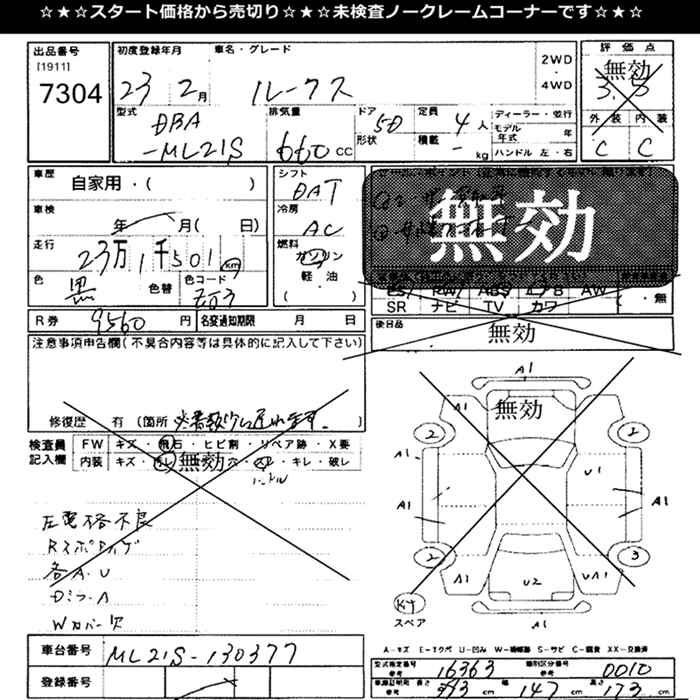 ☆★☆スタート価格から売切り☆★☆未検査ノークレームコーナーです☆★☆
出品番号
[1911]
7304
初度登録年月
車名・グレード
23 2月 ルークス
2WD
・
4WD
評価点
無効
3.5
外装 内装
C C
型式
DBA
-ML21S
排気量
660 cc
ドア
形状
5D
定員
4人
積載
- kg
ディーラー・並行
モデル年式 年
ハンドル 左・右
車歴
自家用・( )
車検
年 月( 日)
走行
23万1千501 km
色
黒
色替
色コード
シフト
DAT
冷房
AC
燃料
ガソリン
軽・油
( )
無効
SR ナビ TV カワ
・無
R券 9560 円
名変通知期限 月 日
後日品
無効
注意事項申告欄(不具合内容等は具体的に記入して下さい)
修復歴 有 (箇所 ※書類
検査員
記入欄
FW キズ・飛石・ヒビ割・リペア跡・X要
内装 キズ・ 無効 穴・ ・キレ・破レ
ハンドル
左電格不良
各A.U
Dミラ-A
Wカバー欠
A1
A1
無効
2
2
A1
U1
A1
A1
2
3
A1
U2
UA1
スペア
A1
A-キズ E-エクボ U-凹み W-補修跡 S-サビ C-腐食 XX-交換済
車台番号 ML21S-130377
登録番号
型式指定番号
参考
16363
類別区分番号
参考
0010
長さ cm 幅 147 cm 高さ 173 cm